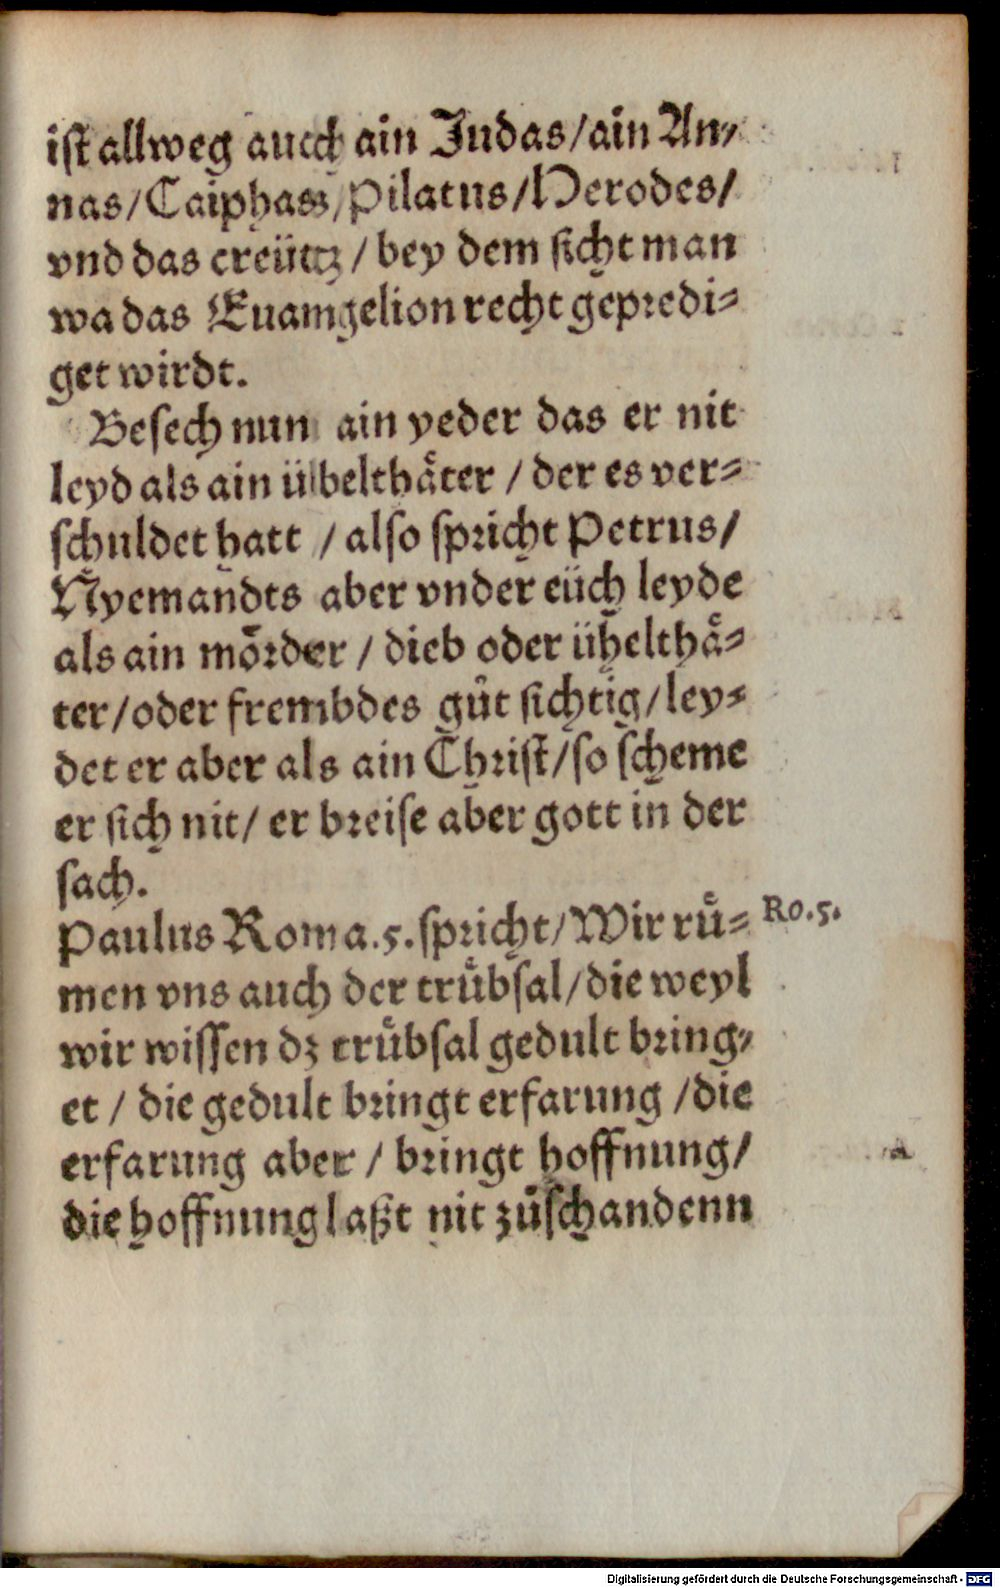 ist allweg aucch ain Judas/ain An⸗
nas/Caiphass/Pilatus/Herodes/
vnd das creütz / bey dem sicht man
wa das Euamgelion recht gepredi⸗
get wirdt.
Besech nun ain yeder das er nit
leyd als ain übelthåter / der es ver⸗
schuldet hatt / also spricht Petrus/
Nyemandts aber vnder eüch leyde
als ain mörder / dieb oder ühelthå⸗
ter/oder frembdes gůt sichtig/ley⸗
det er aber als ain Christ/so scheme
er sich nit/ er breise aber gott in der
sach.
Paulus Roma.5.spricht/Wir rů⸗
Ro.5.
men vns auch der trůbsal/die weyl
wir wissen dz trůbsal gedult bring⸗
et / die gedult bringt erfarung /die
erfarung aber / bringt hoffnung/
die hoffnung laßt nit zůschandenn
Digitalisierung gefördert durch die Deutsche Forschungsgemeinschaft - DFG